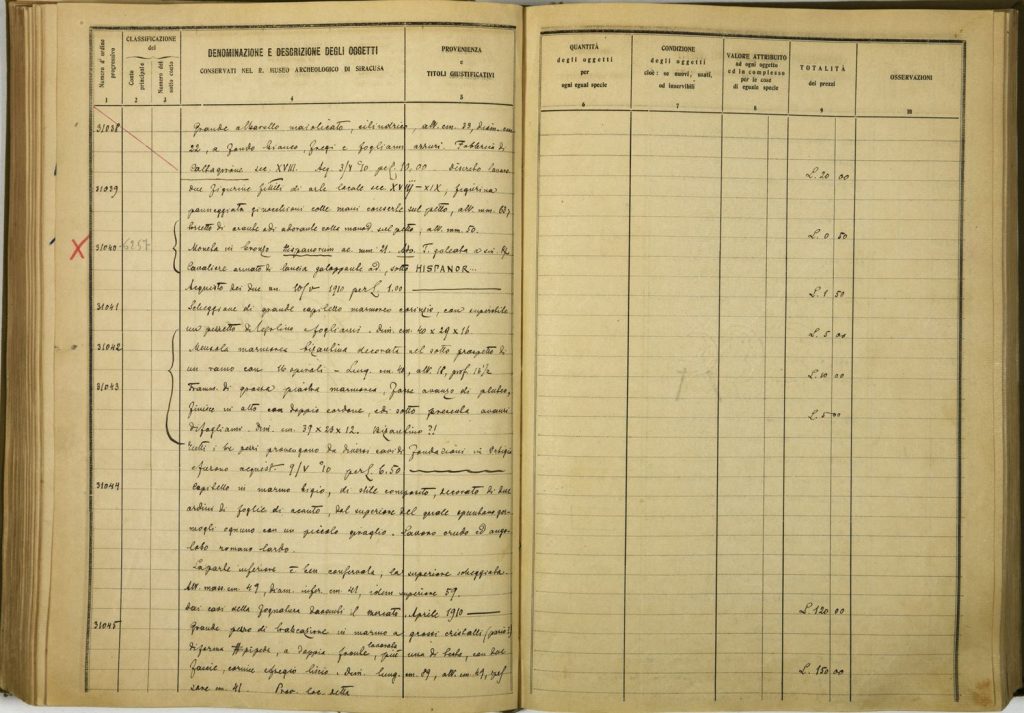 Numero d'ordine progressivo
CLASSIFICAZIONE
del
Costo principale
Numero del sotto costo
DENOMINAZIONE E DESCRIZIONE DEGLI OGGETTI
CONSERVATI NEL R. MUSEO ARCHEOLOGICO DI SIRACUSA
PROVENIENZA
e
TITOLI GIUSTIFICATIVI
1 2 3 4 5
31038 Grande albarello maiolicato, cilindrico, alt. cm. 33, diam. cm
22, a fondo bianco, fregi e fogliami azzuri. Fabbrica di
Caltagirone sec. XVIII. Acq. 3/V °10 per £. 10.00. discreto lavoro
31039 due figurine fittili di arte locale sec. XVIII-XIX, figurina
panneggiata ginocchioni colle mani conserte sul petto, alt. mm. 63;
busto di orante adorante colle mani sul petto, alt. mm. 50.
31040 6257 Moneta in bronzo Hispanorum ae. mm 21. T. galeata a sin.
Cavaliere armato di lancia galoppante ad, sotto HISPANOR...
Acquisto dei due an. 10/V 1910 per £ 1.00
31041 Scheggione di grande capitello marmoreo corinzio, con superstite
un pezzetto di e fogliami. Dim. cm. 40 x 29 x 16
31042 Mensola marmorea bizantina decorata nel sotto prospetto di
un ramo con - Lung. cm. 40, alt. 18, prof. 16 1/2
31043 Framm. di grossa piastra marmorea, forse avanzo di pluteo,
finisce in alto con doppio cordone, e di sotto presenta avanzi
di fogliami. Dim. cm. 39 x 23 x 12. Bizantino ?!
Tutti i tre pezzi provengono da diversi cavi di fondazioni in Ortigia
e furono acquist. 9/V °10 per £. 6.50
31044 Capitello in marmo bigio, di stile composito, decorato di due
ordini di foglie di acanto, dal superiore del quale spuntano ger-
mogli ognuno con un piccolo. Lavoro crudo ed ango-
loso romano tardo.
La parte inferiore è ben conservata, la superiore scheggiata.
Alt. mass. cm. 49, diam. infer. cm. 41, idem superiore 59.
dai cavi della fognatura daccanti il mercato. Aprile 1910
31045 Grande pezzo di trabeazione in marmo a grossi cristalli (pario?)
di forma #pipeda, a doppia fronte lavorata, una di testa, con due
fascie, cornice e fregio liscio. Dim. lung. cm. 89, alt. cm. 49, spes
sore cm. 41. Prov. loc. detta
QUANTITÀ
degli oggetti
per
ogni egual specie
CONDIZIONE
degli oggetti
cioè: se nuovi, usati,
od inservibili
VALORE ATTRIBUITO
ad ogni oggetto
ed in complesso
per le cose
di eguale specie
TOTALITÀ
dei prezzi
OSSERVAZIONI
6 7 8 9 10
L. 20 00
L. 0 50
L. 1 50
L. 5 00
L. 10 00
L. 5 00
L. 120 00
L. 150 00